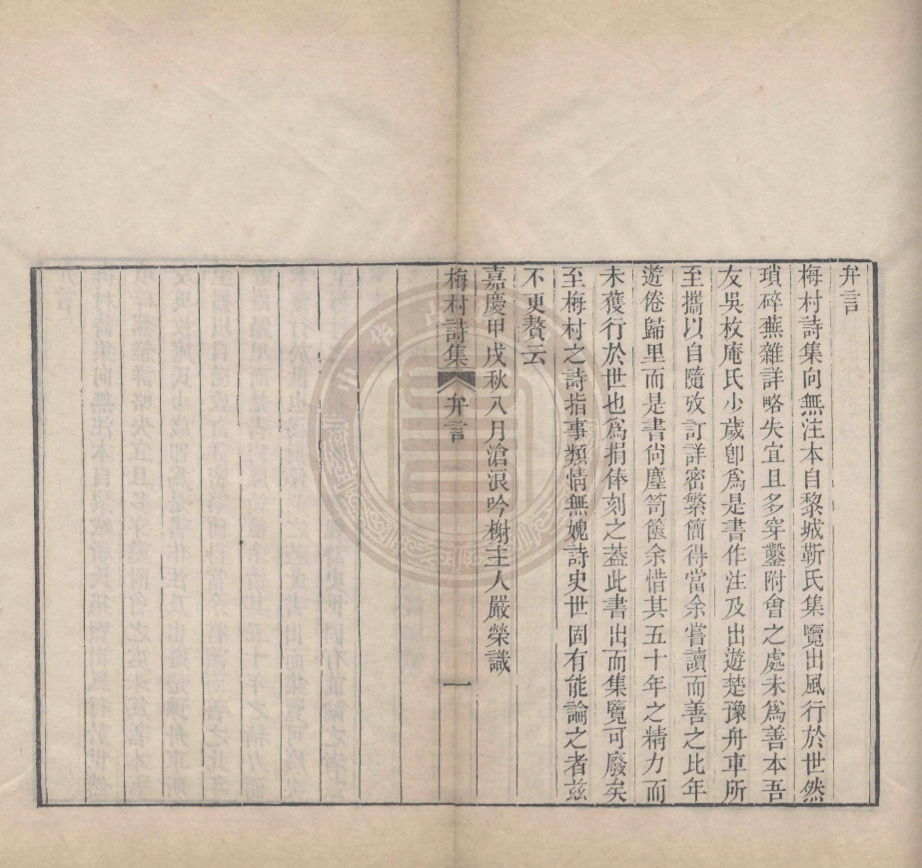 弁言
梅村詩集向無注本自黎城靳氏集覽出風行於世然
瑣碎蕪雜詳略失宜且多穿鑿附會之處未爲善本吾
友吳枚庵氏少歲卽爲是書作注及出遊楚豫舟車所
至攜以自隨攷訂詳密繁簡得當余嘗讀而善之比年
遊倦歸里而是書尙塵笥篋余惜其五十年之精力而
未獲行於世也爲捐俸刻之葢此書出而集覽可廢矣
至梅村之詩指事類情無媿詩史世固有能論之者茲
不更贅云
嘉慶甲戌秋八月滄浪吟榭主人嚴榮識
梅村詩集 弁言 一